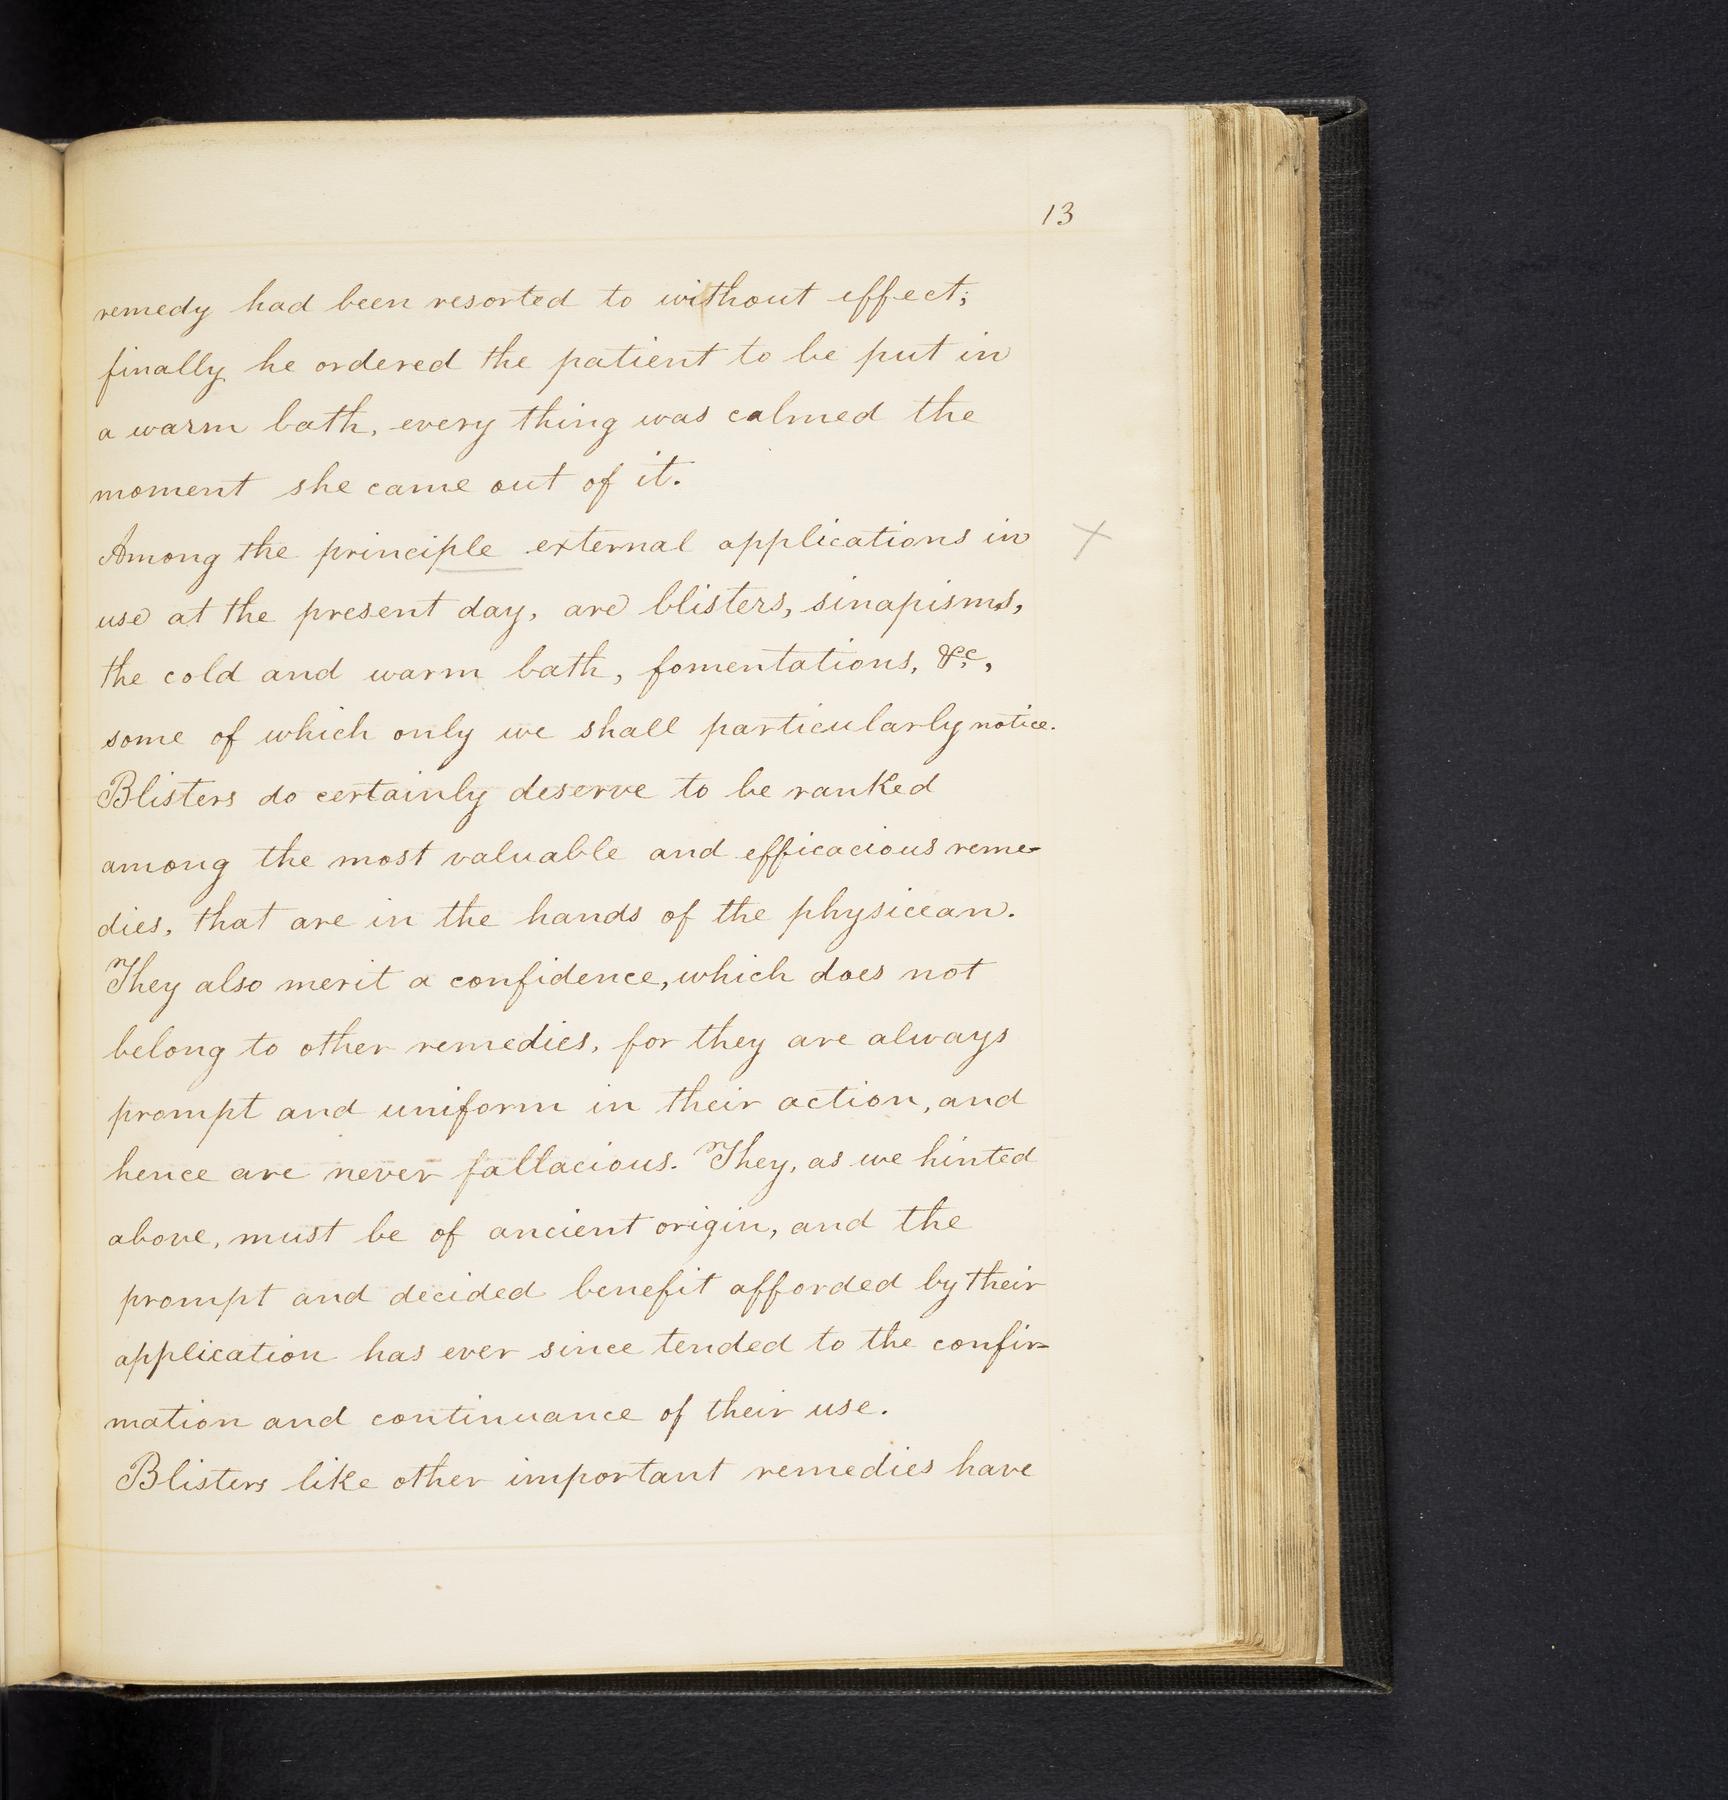 13
remedy had been resorted to without effect;
finally he ordered the patient to be put in
a warm bath, every thing was calmed the
moment she came out of it.
Among the principle external applications in X
use at the present day, are blisters, sinapisms,
the cold and warm bath, fomentations, &c,
some of which only we shall particularly notice.
Blisters do certainly deserve to be ranked
among the most valuable and efficacious reme-
dies, that are in the hands of the physician.
They also merit a confidence, which does not
belong to other remedies, for they are always
prompt and uniform in their action, and
hence are never fallacious. They, as we hinted
above, must be of ancient origin, and the
prompt and decided benefit afforded by their
application has ever since tended to the confir-
mation and continuance of their use.
Blisters like other important remedies have